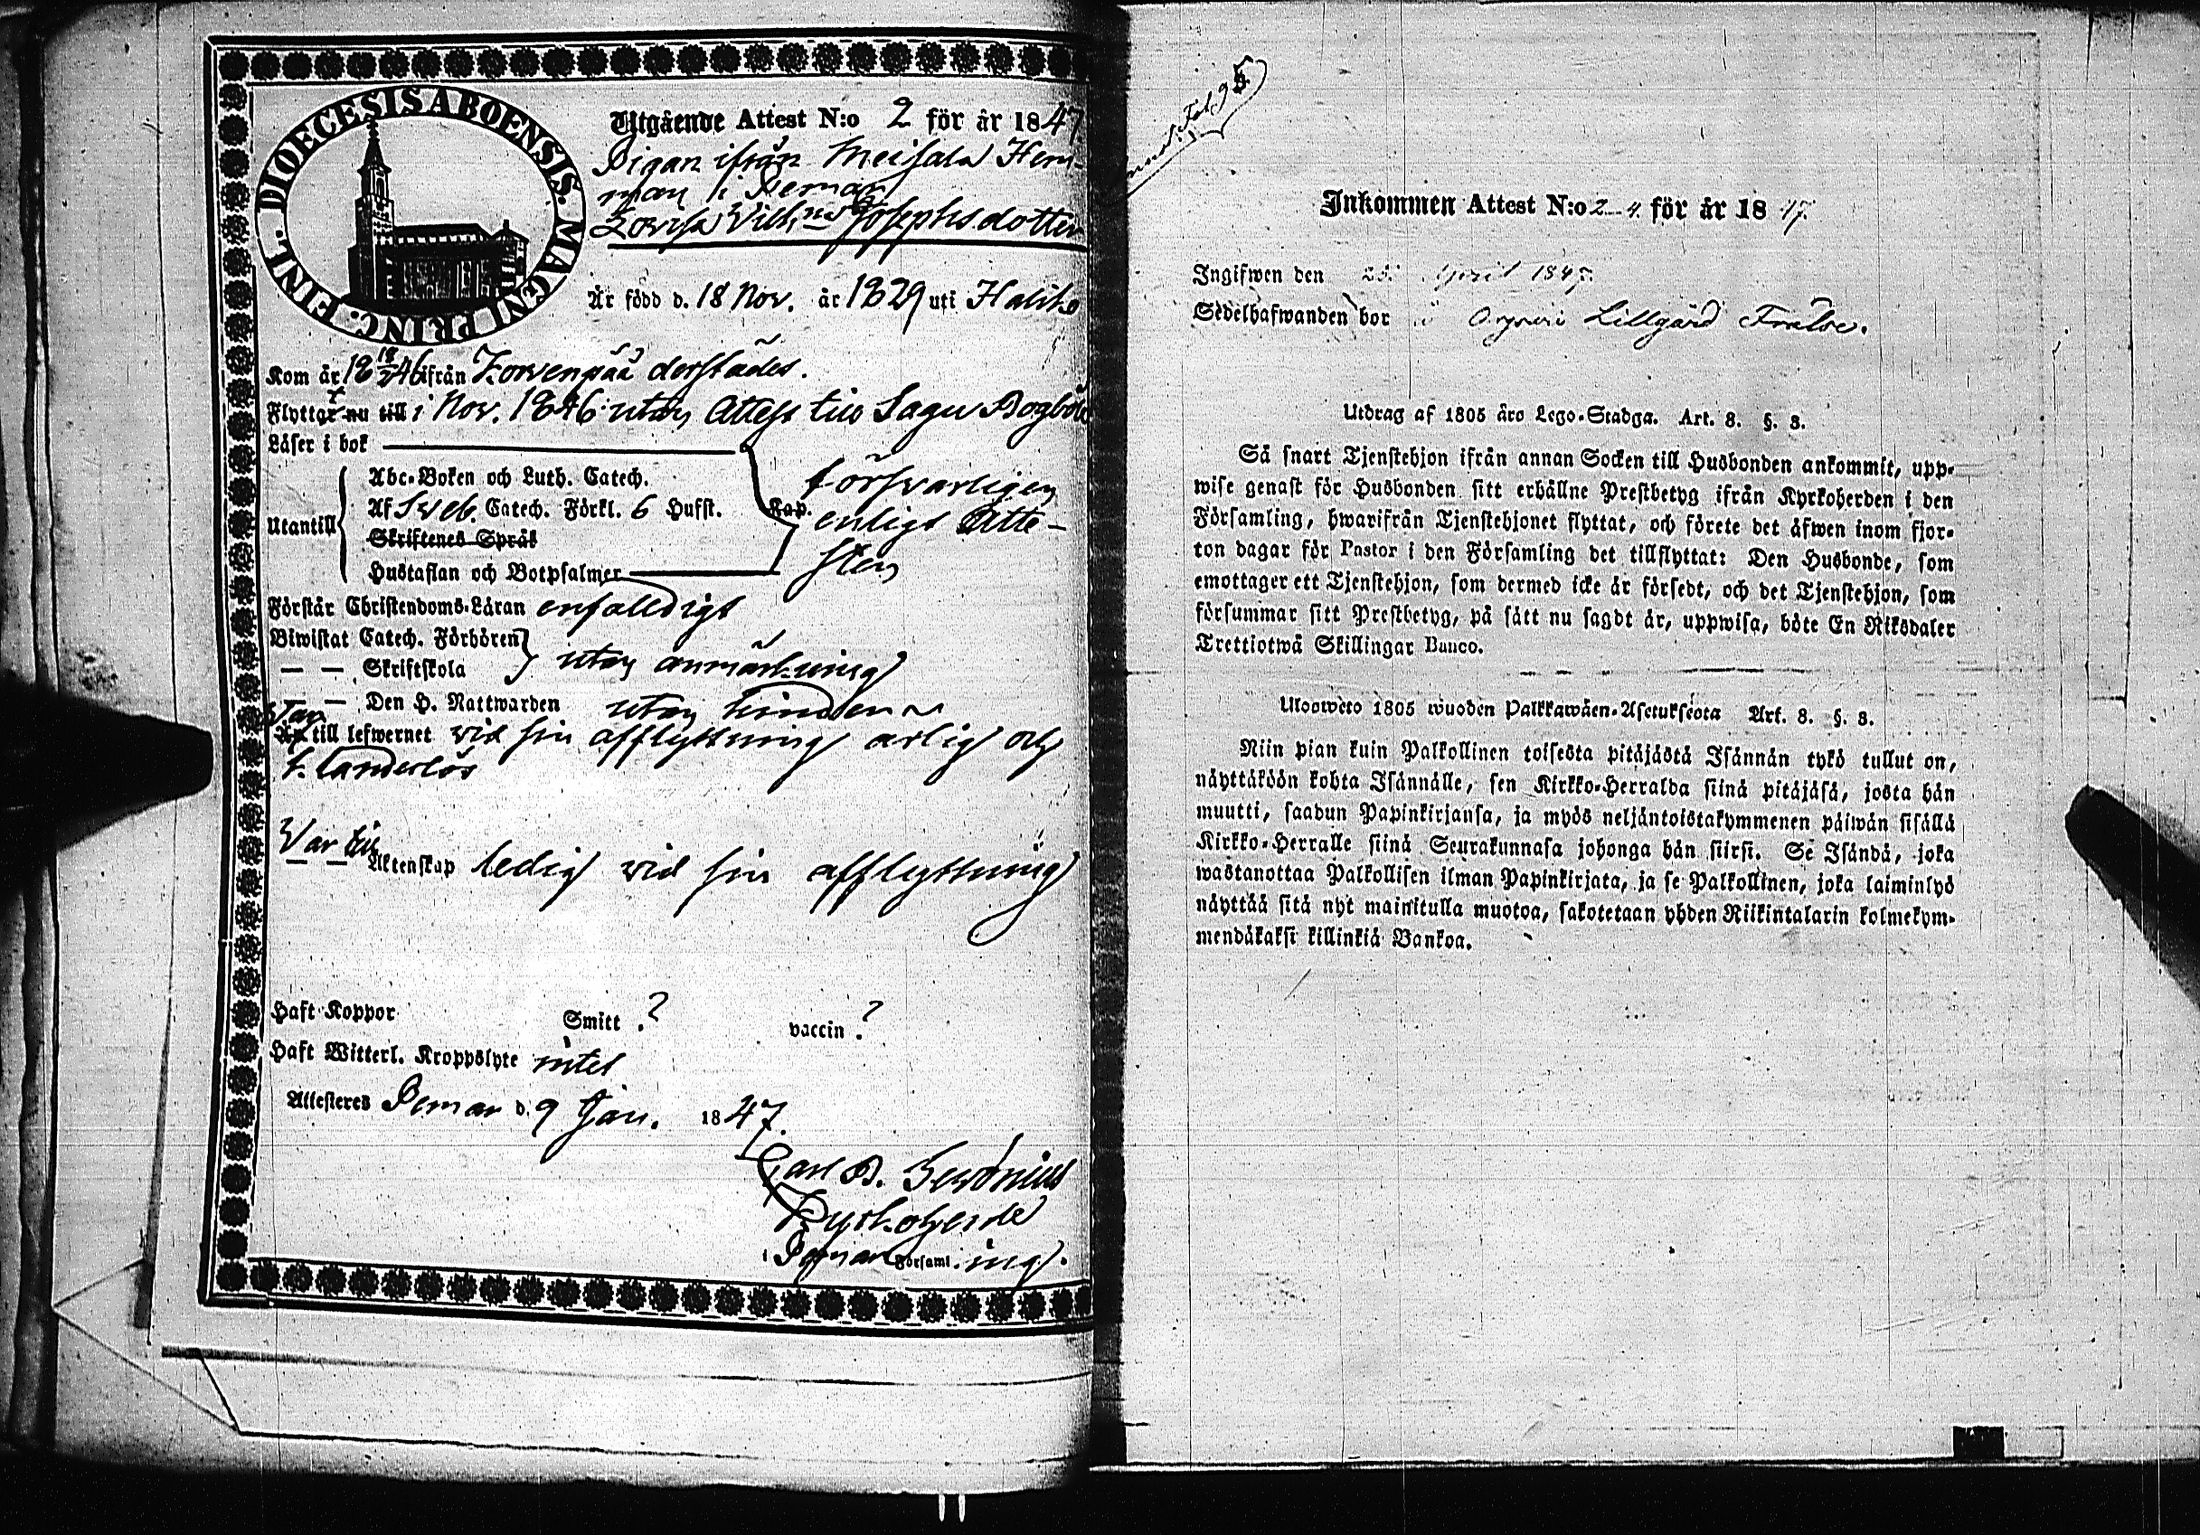 DIOECESIS ABOENSIS. MAGNI PRINC. FINL.
Utgående Attest N:o 2 för år 1847
Pigan ifrån Meisala Hem-
man i Pemar
Lovisa Vilh:na Josephsdotter
Är född d. 18 Nov. år 1829 uti Haliko
Kom år 1846 ifrån derstädes.
Flyttat nu till i Nov. 1846 utan Attest till Sagu
Läser i bok
Abc-Boken och Luth. Catech.
Utantill Af Sveb. Catech. Förkl. 6 Hufst. Kap.
Skriftenes Språk
Hustaflan och Botpsalmer
försvarligen
enligt Atte-
sten
Förstår Christendoms-Läran enfaldigt
Biwistat Catech. Förhören
— — Skriftskola utan anmärkning
— — Den H. Nattwarden utan hinder
Var
Är till lefwernet vid sin afflyttning ärlig och
f. landerlös
Var till
— — Äktenskap ledig vid sin afflyttning
Haft Koppor Smitt ? vaccin ?
Haft Witterl. Kroppslyte intet
Attesteres Pemar d. 9 Jan. 1847.
Carl B.
Kyrkoherde
i Pemar Församling.
Fol 95
Inkommen Attest N:o 2 4. för år 1847.
Ingifwen den 25. April 1847.
Sedelhafwanden bor i Lillgård
Utdrag af 1805 års Lego-Stadga. Art. 8. §. 8.
Så snart Tjenstehjon ifrån annan Socken till Husbonden ankommit, upp-
wise genast för Husbonden sitt erhållne Prestbetyg ifrån Kyrkoherden i den
Församling, hwarifrån Tjenstehjonet flyttat, och förete det äfwen inom fjor-
ton dagar för Pastor i den Församling det tillflyttat: Den Husbonde, som
emottager ett Tjenstehjon, som dermed icke är försedt, och det Tjenstehjon, som
försummar sitt Prestbetyg, på sätt nu sagdt är, uppwisa, böte En Riksdaler
Trettiotwå Skillingar Banco.
Uloswèto 1805 wuoden Palkkawäen-Asetuksésta Art. 8. §. 8.
Niin pian kuin Palkollinen toisesta pitäjästä Isännän tykö tullut on,
näyttäköön kohta Isännälle, sen Kirkko-Herralda siinä pitäjäsä, josta hän
muutti, saadun Papinkirjansa, ja myös neljäntoistakymmenen päiwän sisällä
Kirkko-Herralle siinä Seurakunnasa johonga hän siirsi. Se Isändä, joka
wastanottaa Palkollisen ilman Papinkirjata, ja se Palkollinen, joka laiminlyö
näyttää sitä nyt mainitulla muotoa, sakotetaan yhden Riikintalarin kolmekym-
mendäkaksi killinkiä Bankoa.